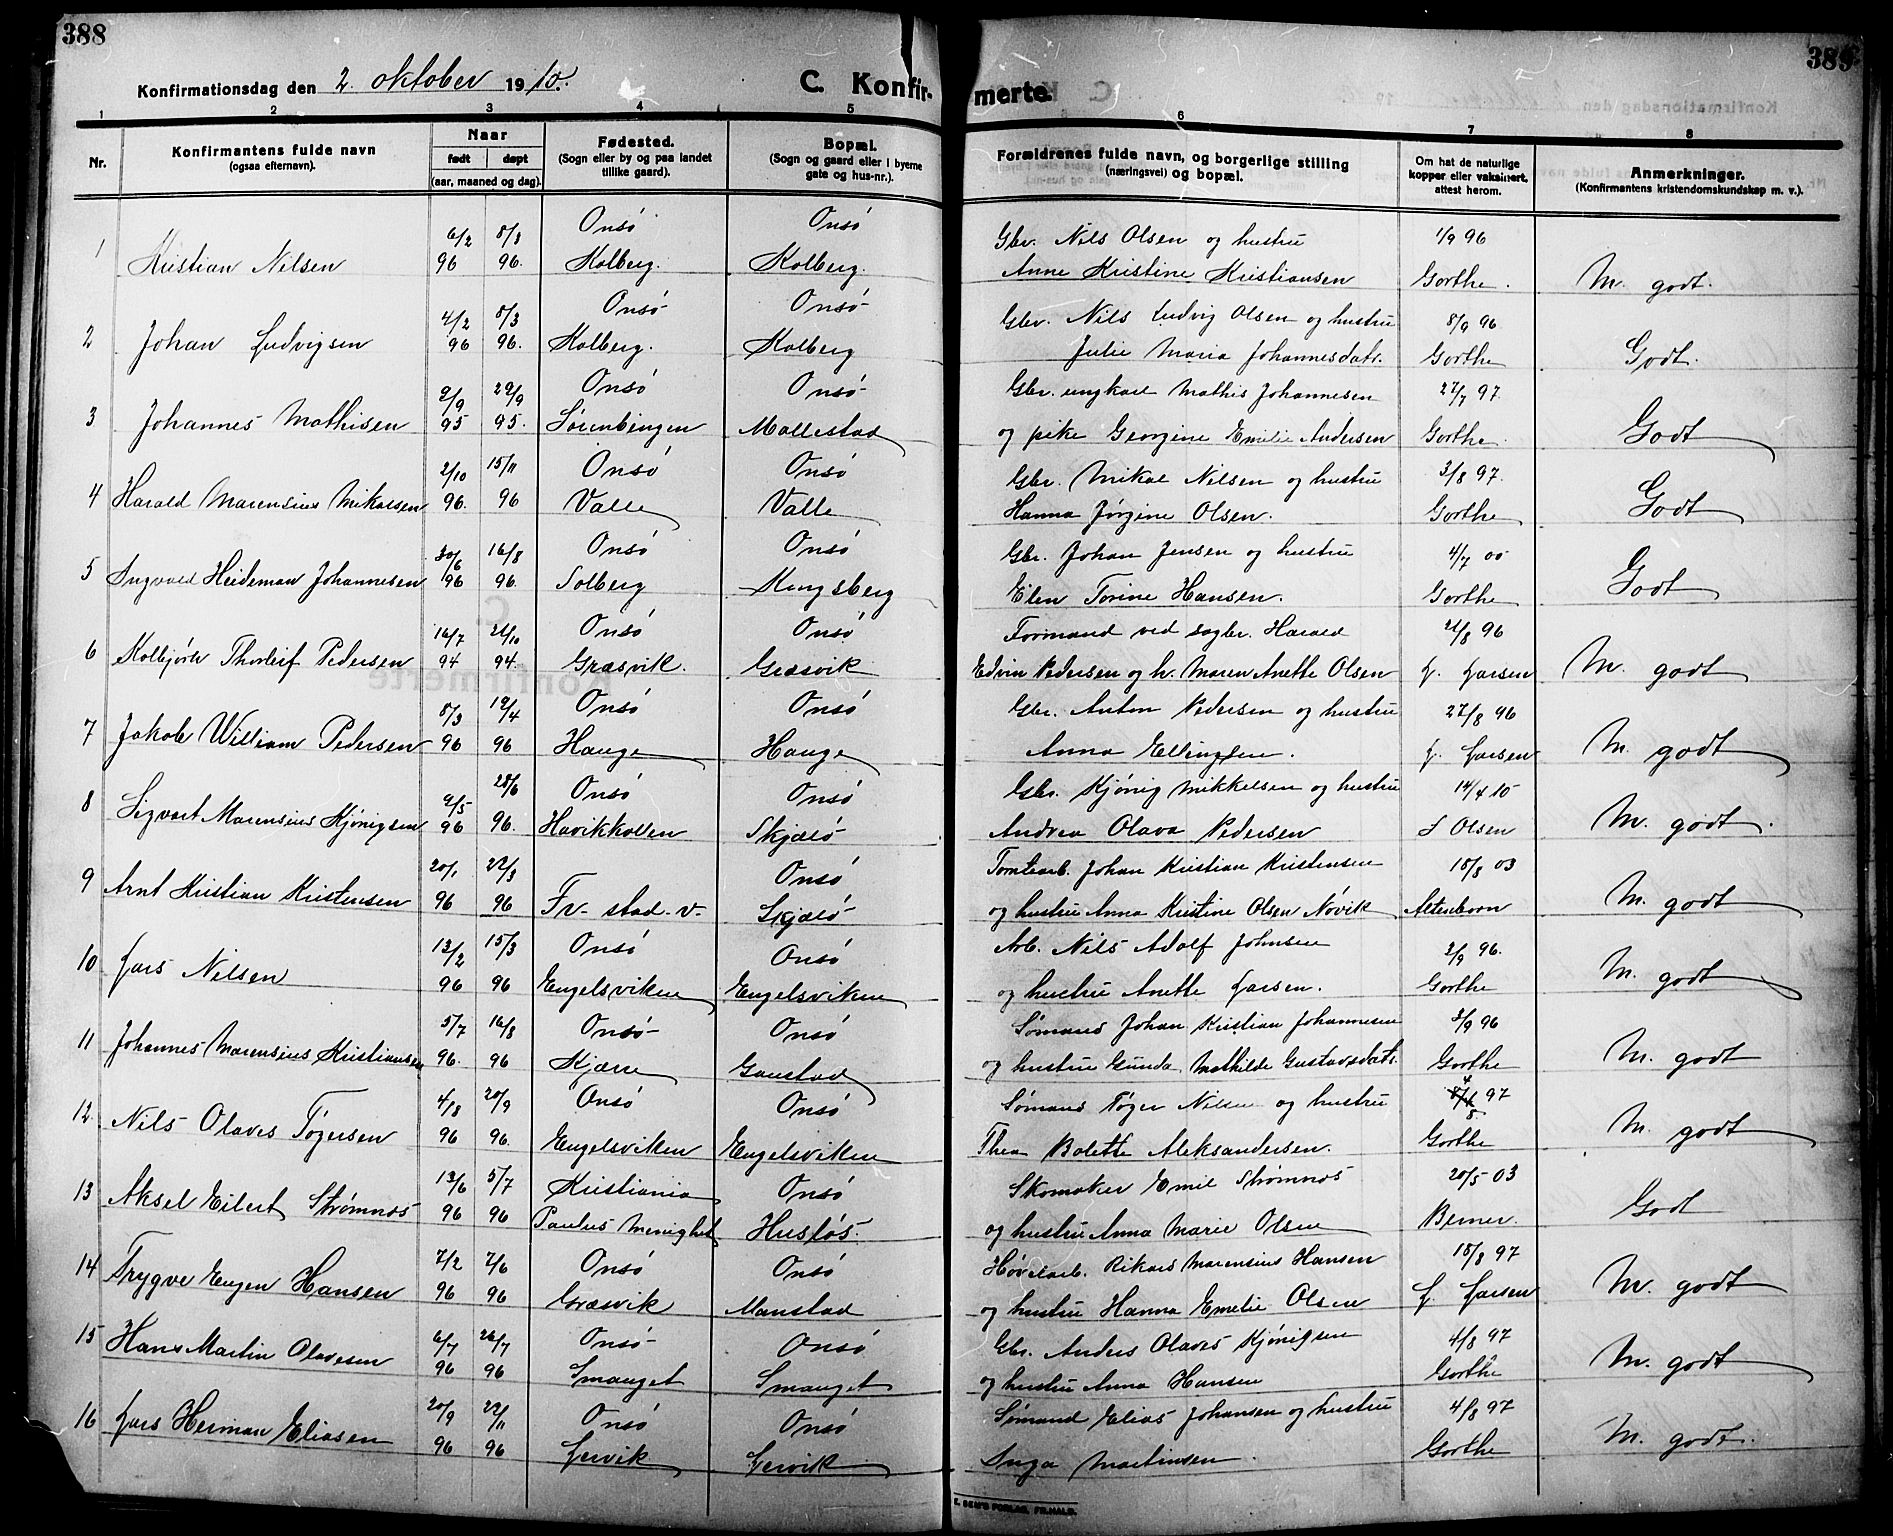 388
389
Konfirmationsdag den 2. oktober 1910.
C. Konfirmerte.
1 2 3 4 5 6 7 8
Nr.
Konfirmantens fulde navn
(ogsaa efternavn).
Naar
født døpt
(aar, maaned og dag).
Fødested.
(Sogn eller by og paa landet
tillike gaard).
Bopæl.
(Sogn og gaard eller i byerne
gate og hus-nr.).
Forældrenes fulde navn, og borgerlige stilling
(næringsvei) og bopæl.
Om hat de naturlige
kopper eller vaksinert,
attest herom.
Anmerkninger.
(Konfirmantens kristendomskundskap m. v.).
1 6/2 8/3 Onsö Onsö Gbr. Nils Olsen og hustru 1/9 96
Kristian Nilsen 96 96. Kolberg. Kolberg. Anne Kristine Kristiansen Gorthe. M. godt.
2 4/2 8/3 Onsö Onsö Gbr. Nils Ludvig Olsen og hustru 8/9 96
Johan Ludvigsen 96 96. Kolberg. Kolberg Julie Maria Johannesdatr. Gorthe Godt.
3 2/9 29/9 Onsö Onsö Gbr. ungkarl Mathis Johannesen 27/7 97.
Johannes Mathisen 95 95. Sörenbingen Mallestad og pike Georgine Emilie Andersen Gorthe. Godt
4 2/10 15/11 Onsö Onsö Gbr. Mikal Nilsen og hustru 3/8 97.
Harald Marensius Mikalsen 96. 96 Valle Valle Hanna Jörgine Olsen. Gorthe Godt
5 30/6 16/8 Onsö Onsö Gbr. Johan Jensen og hustru 4/7 00
Ingvald Heideman Johannesen 96 96. Solberg Kongsberg Elen Torine Hansen. Gorthe Godt
6 16/7 21/10 Onsö Onsö Formand ved sagbr. Harald 21/8 96
Kolbjörn Thorleif Pedersen 94 94. Græsvik. Græsvik Edvin Pedersen og h. Maren Anette Olsen L. Larsen M. godt
7 8/3 12/4 Onsö Onsö Gbr. Anton Pedersen og hustru 27/8 96
Jakob William Pedersen 96 96 Hauge Hauge Anna Ellingsen. L. Larsen M. godt
8 9/5 28/6 Onsö Onsö Gbr. Kjönig Mikkelsen og hustru 14/4 10
Sigvart Marensius Kjönigsen 96 96. Havikkollen Skjælö Andrea Olava Pedersen S Olsen M. godt.
9 20/1 22/3 Onsö Tomtearb. Johan Kristian Kristensen 18/8 03
Arnt Kristian Kristensen 96 96 Fr. stad. v. Skjælö og hustru Anna Kristine Olsen Növik Altenborn M. godt
10 13/2 15/3 Onsö Onsö Arb. Nils Adolf Johnsen 2/9 96.
Lars Nilsen 96 96 Engelsviken Engelsviken og hustru Anette Larsen. Gorthe M. godt
11 5/7 16/8 Onsö Onsö Sömand Johan Kristian Johannesen 3/9 96
Johannes Marensius Kristiansen 96. 96 Kjære Gaustad og hustru Gunda Mathilde Gustavsdatr. Gorthe M. godt
12 4/8 20/9 Onsö Onsö Sömand Töger Nilsen og hustru 97
Nils Olaves Tögersen 96 96. Engelsviken Engelsviken Thea Bolette Aleksandersen. Gorthe M. godt
13 13/6 5/7 Kristiania Onsö Skomaker Emil Strömnæs 20/5 03
Aksel Eilert Strömnæs 96 96 Paulus Menighet Huslös. og hustru Anna Marie Olsen Berner. Godt
14 7/2 7/6 Onsö Onsö Hövelarb. Rikard Marensius Hansen 18/8 97
Trygve Eugen Hansen 96 96 Græsvik Manstad og hustru Hanna Emelie Olsen L. Larsen M. godt
15 6/7 26/7 Onsö Onsö Gbr. Anders Olaves Kjönigsen 4/8 97
Hans Martin Olavesen 96 96 Smauget Smauget og hustru Anna Hansen Gorthe M. godt
16 20/9 22/11 Onsö Onsö Sömand Elias Johansen og hustru 4/8 97
Lars Herman Eliasen 96 96 Lervik Lervik Inga Martinsen. Gorthe M. godt.
E. SEM'S FORLAG, FR.HALD.